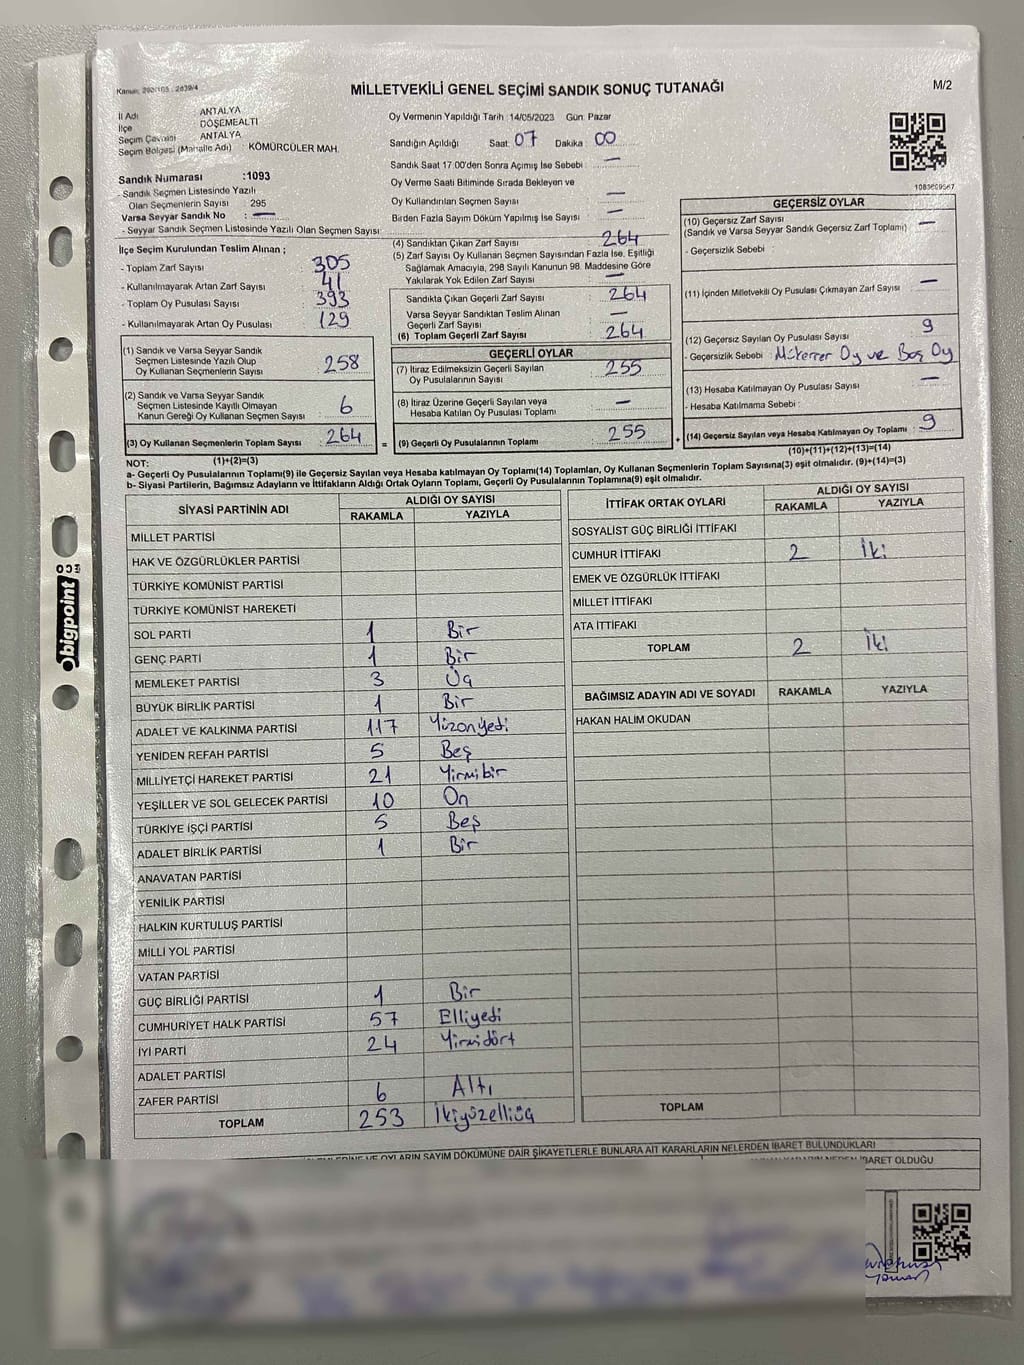 MİLLETVEKİLİ GENEL SEÇİMİ SANDIK SONUÇ TUTANAĞI
M/2
İl Adı ANTALYA
İlçe DÖŞEMEALTI
Seçim Çevresi ANTALYA
Seçim Bölgesi (Mahalle Adı) : KÖMÜRCÜLER MAH.
Sandık Numarası :1093
- Sandık Seçmen Listesinde Yazılı
Olan Seçmenlerin Sayısı 295
Varsa Seyyar Sandık No : —
- Seyyar Sandık Seçmen Listesinde Yazılı Olan Seçmen Sayısı
Oy Vermenin Yapıldığı Tarih :14/05/2023 Gün: Pazar
Sandığın Açıldığı Saat: 07 Dakika : 00
Sandık Saat 17.00'den Sonra Açımış İse Sebebi : —
Oy Verme Saati Bitiminde Sırada Bekleyen ve
Oy Kullandırılan Seçmen Sayısı : —
Birden Fazla Sayım Döküm Yapılmış İse Sayısı : —
İlçe Seçim Kurulundan Teslim Alınan ;
- Toplam Zarf Sayısı : 305
- Kullanılmayarak Artan Zarf Sayısı : 41
- Toplam Oy Pusulası Sayısı : 393
- Kullanılmayarak Artan Oy Pusulası : 129
(1) Sandık ve Varsa Seyyar Sandık
Seçmen Listesinde Yazılı Olup
Oy Kullanan Seçmenlerin Sayısı : 258
(2) Sandık ve Varsa Seyyar Sandık
Seçmen Listesinde Kayıtlı Olmayan
Kanun Gereği Oy Kullanan Seçmen Sayısı : 6
(3) Oy Kullanan Seçmenlerin Toplam Sayısı : 264
(4) Sandıktan Çıkan Zarf Sayısı : 264
(5) Zarf Sayısı Oy Kullanan Seçmen Sayısından Fazla İse, Eşitliği
Sağlamak Amacıyla, 298 Sayılı Kanunun 98. Maddesine Göre
Yakılarak Yok Edilen Zarf Sayısı : —
Sandıkta Çıkan Geçerli Zarf Sayısı : 264
Varsa Seyyar Sandıktan Teslim Alınan
Geçerli Zarf Sayısı : —
(6) Toplam Geçerli Zarf Sayısı : 264
GEÇERLİ OYLAR
(7) İtiraz Edilmeksizin Geçerli Sayılan
Oy Pusulalarının Sayısı : 255
(8) İtiraz Üzerine Geçerli Sayılan veya
Hesaba Katılan Oy Pusulası Toplamı : —
= (9) Geçerli Oy Pusulalarının Toplamı : 255
1083609567
GEÇERSİZ OYLAR
(10) Geçersiz Zarf Sayısı : —
(Sandık ve Varsa Seyyar Sandık Geçersiz Zarf Toplamı)
- Geçersizlik Sebebi :
(11) İçinden Milletvekili Oy Pusulası Çıkmayan Zarf Sayısı : —
(12) Geçersiz Sayılan Oy Pusulası Sayısı : 9
- Geçersizlik Sebebi : Mükerrer Oy ve Boş Oy
(13) Hesaba Katılmayan Oy Pusulası Sayısı : —
- Hesaba Katılmama Sebebi :
+ (14) Geçersiz Sayılan veya Hesaba Katılmayan Oy Toplamı : 9
NOT: (1)+(2)=(3)
(10)+(11)+(12)+(13)=(14)
a- Geçerli Oy Pusulalarının Toplamı(9) ile Geçersiz Sayılan veya Hesaba katılmayan Oy Toplamı(14) Toplamları, Oy Kullanan Seçmenlerin Toplam Sayısına(3) eşit olmalıdır. (9)+(14)=(3)
b- Siyasi Partilerin, Bağımsız Adayların ve İttifakların Aldığı Ortak Oyların Toplamı, Geçerli Oy Pusulalarının Toplamına(9) eşit olmalıdır.
SİYASİ PARTİNİN ADI ALDIĞI OY SAYISI
RAKAMLA YAZIYLA
MİLLET PARTİSİ
HAK VE ÖZGÜRLÜKLER PARTİSİ
TÜRKİYE KOMÜNİST PARTİSİ
TÜRKİYE KOMÜNİST HAREKETİ
SOL PARTİ 1 Bir
GENÇ PARTİ 1 Bir
MEMLEKET PARTİSİ 3 Üç
BÜYÜK BİRLİK PARTİSİ 1 Bir
ADALET VE KALKINMA PARTİSİ 117 Yüzonyedi
YENİDEN REFAH PARTİSİ 5 Beş
MİLLİYETÇİ HAREKET PARTİSİ 21 Yirmibir
YEŞİLLER VE SOL GELECEK PARTİSİ 10 On
TÜRKİYE İŞÇİ PARTİSİ 5 Beş
ADALET BİRLİK PARTİSİ 1 Bir
ANAVATAN PARTİSİ
YENİLİK PARTİSİ
HALKIN KURTULUŞ PARTİSİ
MİLLİ YOL PARTİSİ
VATAN PARTİSİ
GÜÇ BİRLİĞİ PARTİSİ 1 Bir
CUMHURİYET HALK PARTİSİ 57 Elliyedi
İYİ PARTİ 24 Yirmidört
ADALET PARTİSİ
ZAFER PARTİSİ 6 Altı
TOPLAM 253 İkiyüzelliüç
İTTİFAK ORTAK OYLARI ALDIĞI OY SAYISI
RAKAMLA YAZIYLA
SOSYALİST GÜÇ BİRLİĞİ İTTİFAKI
CUMHUR İTTİFAKI 2 İki
EMEK VE ÖZGÜRLÜK İTTİFAKI
MİLLET İTTİFAKI
ATA İTTİFAKI
TOPLAM 2 İki
BAĞIMSIZ ADAYIN ADI VE SOYADI RAKAMLA YAZIYLA
HAKAN HALİM OKUDAN
TOPLAM
OYLARIN SAYIM DÖKÜMÜNE DAİR ŞİKAYETLERLE BUNLARA AİT KARARLARIN NELERDEN İBARET BULUNDUKLARI
İBARET OLDUĞU
bigpoint